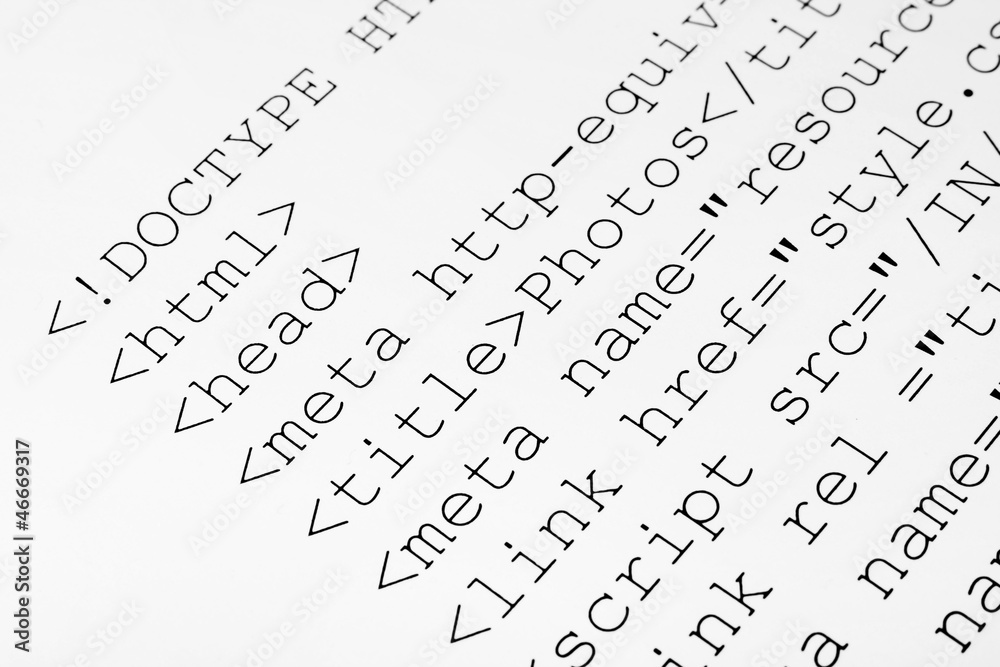 <!DOCTYPE HT
<html>
<head>
<meta http-equiv-
<title>Photos</tit
<meta name="resource
<link href="style.cs
<script src="/IN/
link rel ="ti
a name="
nam
Adobe Stock | #46669317